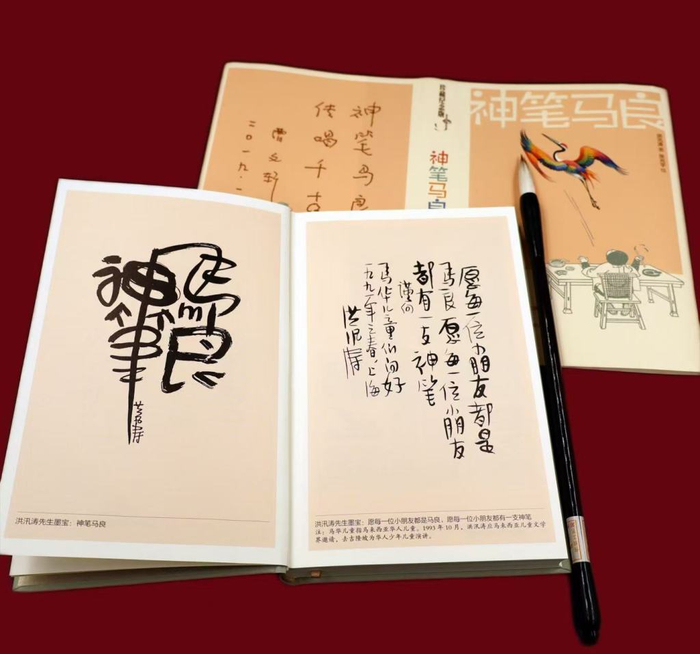 神笔马良
传唱千古
曹文轩
二〇一九.
珍藏纪念版
神笔马良
神笔马良
神笔
马良
洪汛涛
洪汛涛先生墨宝：神笔马良
愿每一位小朋友都是
马良 愿每一位小朋友
都有一支神笔
谨向
马华儿童们问好
一九九一年之春 上海
洪汛涛
洪汛涛先生墨宝：愿每一位小朋友都是马良，愿每一位小朋友都有一支神笔
注：马华儿童指马来西亚华人儿童。1993年10月，洪汛涛应马来西亚儿童文学
界邀请，去吉隆坡为华人少年儿童演讲。